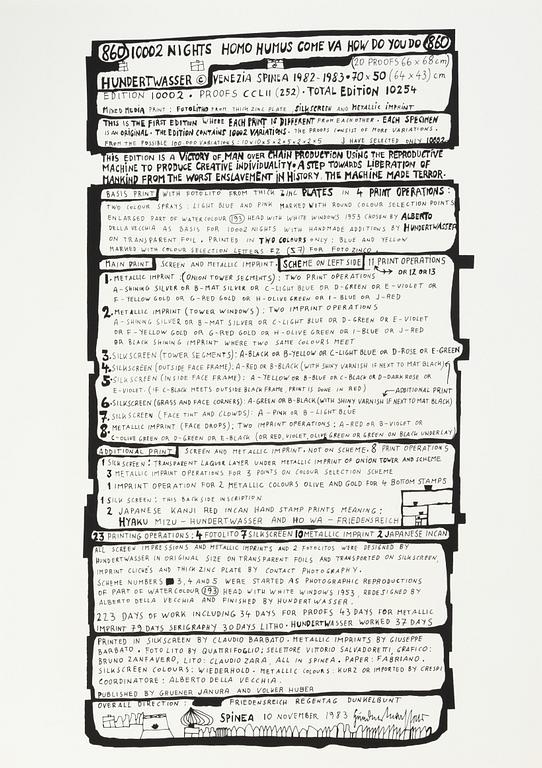 860 10002 NIGHTS HOMO HUMUS COME VA HOW DO YOU DO 860
(20 PROOFS 66 x 68 cm)
HUNDERTWASSER © VENEZIA SPINEA 1982-1983 • 70 x 50 (64 x 43) cm
EDITION 10002 • PROOFS CCLII (252) • TOTAL EDITION 10254
MIXED MEDIA PRINT: FOTOLITO FROM THICK ZINC PLATE SILKSCREEN AND METALLIC IMPRINT
THIS IS THE FIRST EDITION WHERE EACH PRINT IS DIFFERENT FROM EACH OTHER. EACH SPECIMEN
IS AN ORIGINAL. THE EDITION CONTAINS 10002 VARIATIONS. THE PROOFS CONSIST OF MORE VARIATIONS.
FROM THE POSSIBLE 100 000 VARIATIONS: 10x10x5x2x5x2x2x5 I HAVE SELECTED ONLY 10002
THIS EDITION IS A VICTORY OF MAN OVER CHAIN PRODUCTION USING THE REPRODUCTIVE
MACHINE TO PRODUCE CREATIVE INDIVIDUALITY • A STEP TOWARDS LIBERATION OF
MANKIND FROM THE WORST ENSLAVEMENT IN HISTORY. THE MACHINE MADE TERROR.
BASIS PRINT WITH FOTOLITO FROM THICK ZINC PLATES IN 4 PRINT OPERATIONS:
TWO COLOUR SPRAYS: LIGHT BLUE AND PINK MARKED WITH ROUND COLOUR SELECTION POINTS
ENLARGED PART OF WATERCOLOUR 193 HEAD WITH WHITE WINDOWS 1953 CHOSEN BY ALBERTO
DELLA VECCHIA AS BASIS FOR 10002 NIGHTS WITH HANDMADE ADDITIONS BY HUNDERTWASSER
ON TRANSPARENT FOIL. PRINTED IN TWO COLOURS ONLY: BLUE AND YELLOW
MARKED WITH COLOUR SELECTION LETTERS FZ (S7) FOR FOTO ZINCO
MAIN PRINT SCREEN AND METALLIC IMPRINT. SCHEME ON LEFT SIDE 11 PRINT OPERATIONS
OR 12 OR 13
1. METALLIC IMPRINT: (ONION TOWER SEGMENTS); TWO PRINT OPERATIONS
A-SHINING SILVER OR B-MAT SILVER OR C-LIGHT BLUE OR D-GREEN OR E-VIOLET OR
F-YELLOW GOLD OR G-RED GOLD OR H-OLIVE GREEN OR I-BLUE OR J-RED
2. METALLIC IMPRINT (TOWER WINDOWS); TWO IMPRINT OPERATIONS
A-SHINING SILVER OR B-MAT SILVER OR C-LIGHT BLUE OR D-GREEN OR E-VIOLET
OR F-YELLOW GOLD OR G-RED GOLD OR H-OLIVE GREEN OR I-BLUE OR J-RED
OR BLACK SHINING IMPRINT WHERE TWO SAME COLOURS MEET
3. SILKSCREEN (TOWER SEGMENTS): A-BLACK OR B-YELLOW OR C-LIGHT BLUE OR D-ROSE OR E-GREEN
4. SILKSCREEN (OUTSIDE FACE FRAME); A-RED OR B-BLACK (WITH SHINY VARNISH IF NEXT TO MAT BLACK)
5. SILKSCREEN (INSIDE FACE FRAME): A-YELLOW OR B-BLUE OR C-BLACK OR D-DARK ROSE OR
E-VIOLET. (IF C-BLACK MEETS OUTSIDE BLACK FRAME PRINT IS DONE IN RED) ADDITIONAL PRINT
6. SILKSCREEN (GRASS AND FACE CORNERS): A-GREEN OR B-BLACK (WITH SHINY VARNISH IF NEXT TO MAT BLACK)
7. SILKSCREEN (FACE TINT AND CLOWDS): A-PINK OR B-LIGHT BLUE
8. METALLIC IMPRINT (FACE DROPS); TWO IMPRINT OPERATIONS; A-RED OR B-VIOLET OR
C-OLIVE GREEN OR D-GREEN OR E-BLACK (OR RED, VIOLET, OLIVE GREEN OR GREEN ON BLACK UNDERLAY)
ADDITIONAL PRINT SCREEN AND METALLIC IMPRINT. NOT ON SCHEME. 8 PRINT OPERATIONS
1 SILKSCREEN: TRANSPARENT LAQUER LAYER UNDER METALLIC IMPRINT OF ONION TOWER AND SCHEME
3 METALLIC IMPRINT OPERATIONS FOR 3 POINTS ON COLOUR SELECTION SCHEME
1 IMPRINT OPERATION FOR 2 METALLIC COLOURS OLIVE AND GOLD FOR 4 BOTTOM STAMPS
1 SILK SCREEN: THIS BACK SIDE INSCRIPTION
2 JAPANESE KANJI RED INCAN HAND STAMP PRINTS MEANING:
HYAKU MIZU - HUNDERTWASSER AND HO WA - FRIEDENSREICH
23 PRINTING OPERATIONS: 4 FOTOLITO 7 SILKSCREEN 10 METALLIC IMPRINT 2 JAPANESE INCAN
ALL SCREEN IMPRESSIONS AND METALLIC IMPRINTS AND 2 FOTOLITOS WERE DESIGNED BY
HUNDERTWASSER IN ORIGINAL SIZE ON TRANSPARENT FOILS AND TRANSPORTED ON SILKSCREEN,
IMPRINT CLICHÉS AND THICK ZINC PLATE BY CONTACT PHOTOGRAPHY.
SCHEME NUMBERS 3, 4 AND 5 WERE STARTED AS PHOTOGRAPHIC REPRODUCTIONS
OF PART OF WATERCOLOUR 193 HEAD WITH WHITE WINDOWS 1953, REDESIGNED BY
ALBERTO DELLA VECCHIA AND FINISHED BY HUNDERTWASSER.
223 DAYS OF WORK INCLUDING 34 DAYS FOR PROOFS 43 DAYS FOR METALLIC
IMPRINT 79 DAYS SERIGRAPHY 30 DAYS LITHO. HUNDERTWASSER WORKED 37 DAYS
PRINTED IN SILKSCREEN BY CLAUDIO BARBATO. METALLIC IMPRINTS BY GIUSEPPE
BARBATO. FOTO LITO BY QUATTRIFOGLIO; SELETTORE VITTORIO SALVADORETTI, GRAFICO:
BRUNO ZANFAVERO, LITO: CLAUDIO ZARA, ALL IN SPINEA. PAPER: FABRIANO.
SILKSCREEN COLOURS: WIEDERHOLD. METALLIC COLOURS: KURZ OR IMPORTED BY CRESPI
COORDINATORE: ALBERTO DELLA VECCHIA.
PUBLISHED BY GRUENER JANURA AND VOLKER HUBER
OVERALL DIRECTION: FRIEDENSREICH REGENTAG DUNKELBUNT
SPINEA 10 NOVEMBER 1983